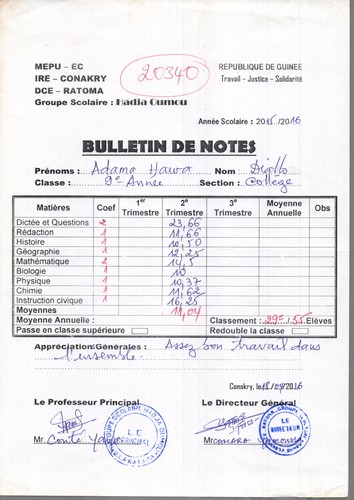 MEPU – EC
IRE – CONAKRY
DCE – RATOMA
Groupe Scolaire : Hadja Oumou
20340
REPUBLIQUE DE GUINEE
Travail - Justice - Solidarité
Année Scolaire : 2015/2016
BULLETIN DE NOTES
Prénoms : Adama Hawa Nom : Diallo
Classe : 9e Année Section : Collège
Matières Coef 1er Trimestre 2e Trimestre 3e Trimestre Moyenne Annuelle Obs
Dictée et Questions 2 23,66
Rédaction 1 11,66
Histoire 1 10,50
Géographie 1 12,25
Mathématique 2 14,5
Biologie 1 10
Physique 1 10,37
Chimie 1 11,62
Instruction civique 1 16,25
Moyennes 11,04
Moyenne Annuelle : Classement : 29e / 55 Elèves
Passe en classe supérieure Redouble la classe
Appréciation Générales : Assez bon travail dans
l'ensemble.
Conakry, le 18/04/2016
Le Professeur Principal Le Directeur Général
Mr. Conté Mr. CAMARA
LE
PRINCIPAL
LE
DIRECTEUR